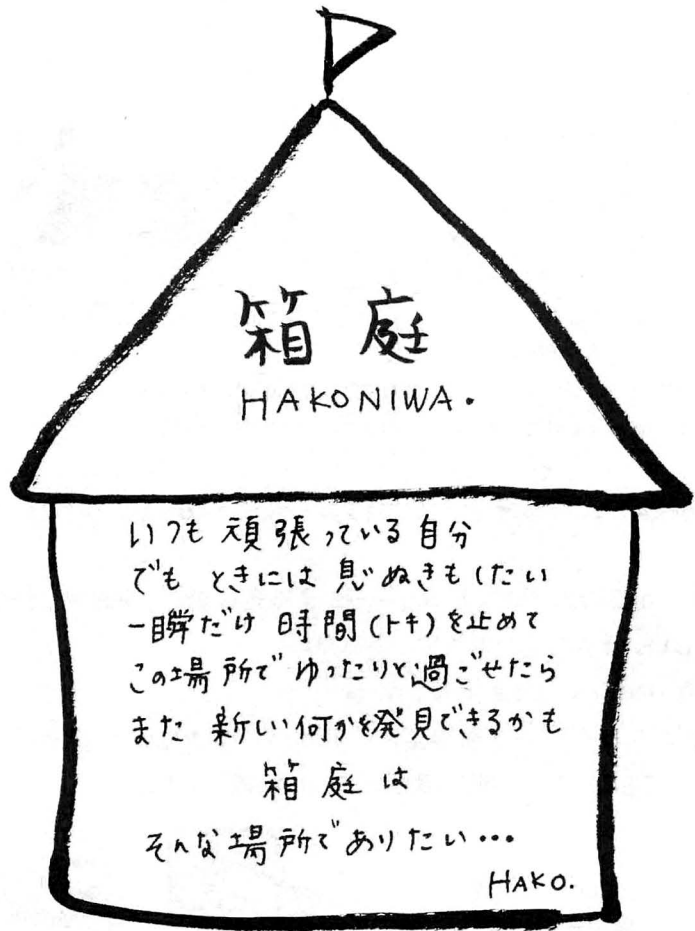 箱庭
HAKONIWA.
いつも 頑張っている 自分
でも ときには 息ぬきもしたい
一瞬だけ 時間(トキ)を止めて
この場所で ゆったりと過ごせたら
また 新しい何かを発見できるかも
箱庭は
そんな場所でありたい・・・
HAKO.